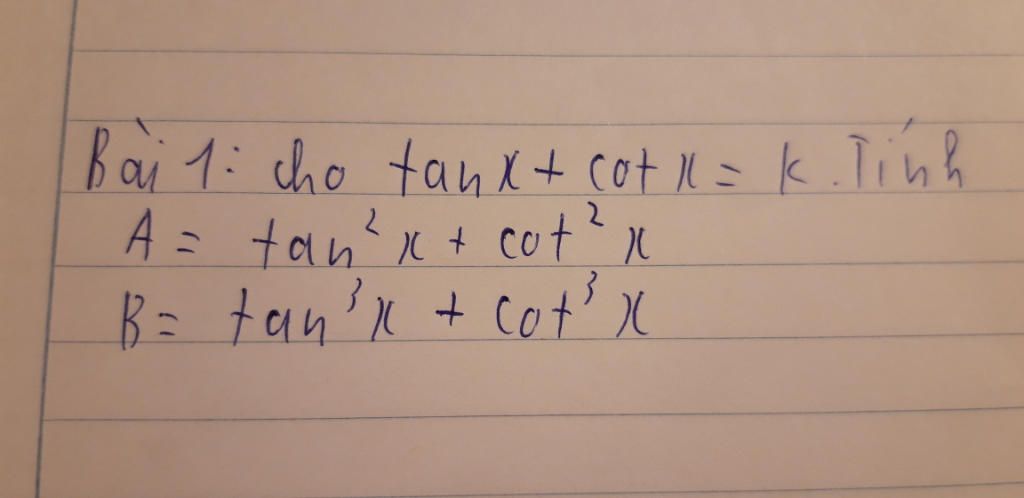 Bài 1: cho tan x + cot x = k. Tính
A = tan² x + cot² x
B = tan³ x + cot³ x